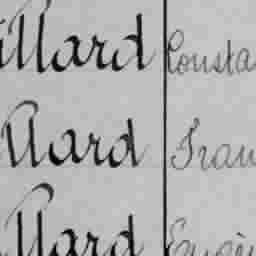 illard Consta
Allard Fran
Allard Eugè